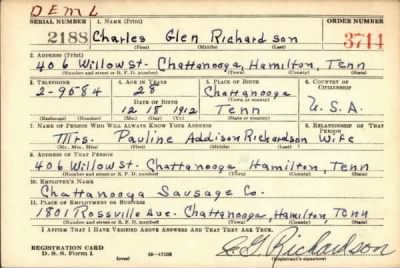 DEML
SERIAL NUMBER 1. NAME (Print) ORDER NUMBER
2188 Charles Glen Richardson 3714
(First) (Middle) (Last)
2. ADDRESS (Print)
406 Willow St- Chattanooga, Hamilton, Tenn
(Number and street or R. F. D. number) (Town) (County) (State)
3. TELEPHONE 4. AGE IN YEARS 5. PLACE OF BIRTH 6. COUNTRY OF CITIZENSHIP
2-9684 28 Chattanooga
DATE OF BIRTH (Town or county)
12 18 1912 Tenn U.S.A.
(Exchange) (Number) (Mo.) (Day) (Yr.) (State or country)
7. NAME OF PERSON WHO WILL ALWAYS KNOW YOUR ADDRESS 8. RELATIONSHIP OF THAT PERSON
Mrs. Pauline Addison Richardson Wife
(Mr., Mrs., Miss) (First) (Middle) (Last)
9. ADDRESS OF THAT PERSON
406 Willow St. Chattanooga, Hamilton, Tenn
(Number and street or R. F. D. number) (Town) (County) (State)
10. EMPLOYER'S NAME
Chattanooga Sausage Co.
11. PLACE OF EMPLOYMENT OR BUSINESS
1801 Rossville Ave. Chattanooga, Hamilton, Tenn
(Number and street or R. F. D. number) (Town) (County) (State)
I AFFIRM THAT I HAVE VERIFIED ABOVE ANSWERS AND THAT THEY ARE TRUE.
REGISTRATION CARD
D. S. S. Form 1 (over) C. G. Richardson
(Registrant's signature)